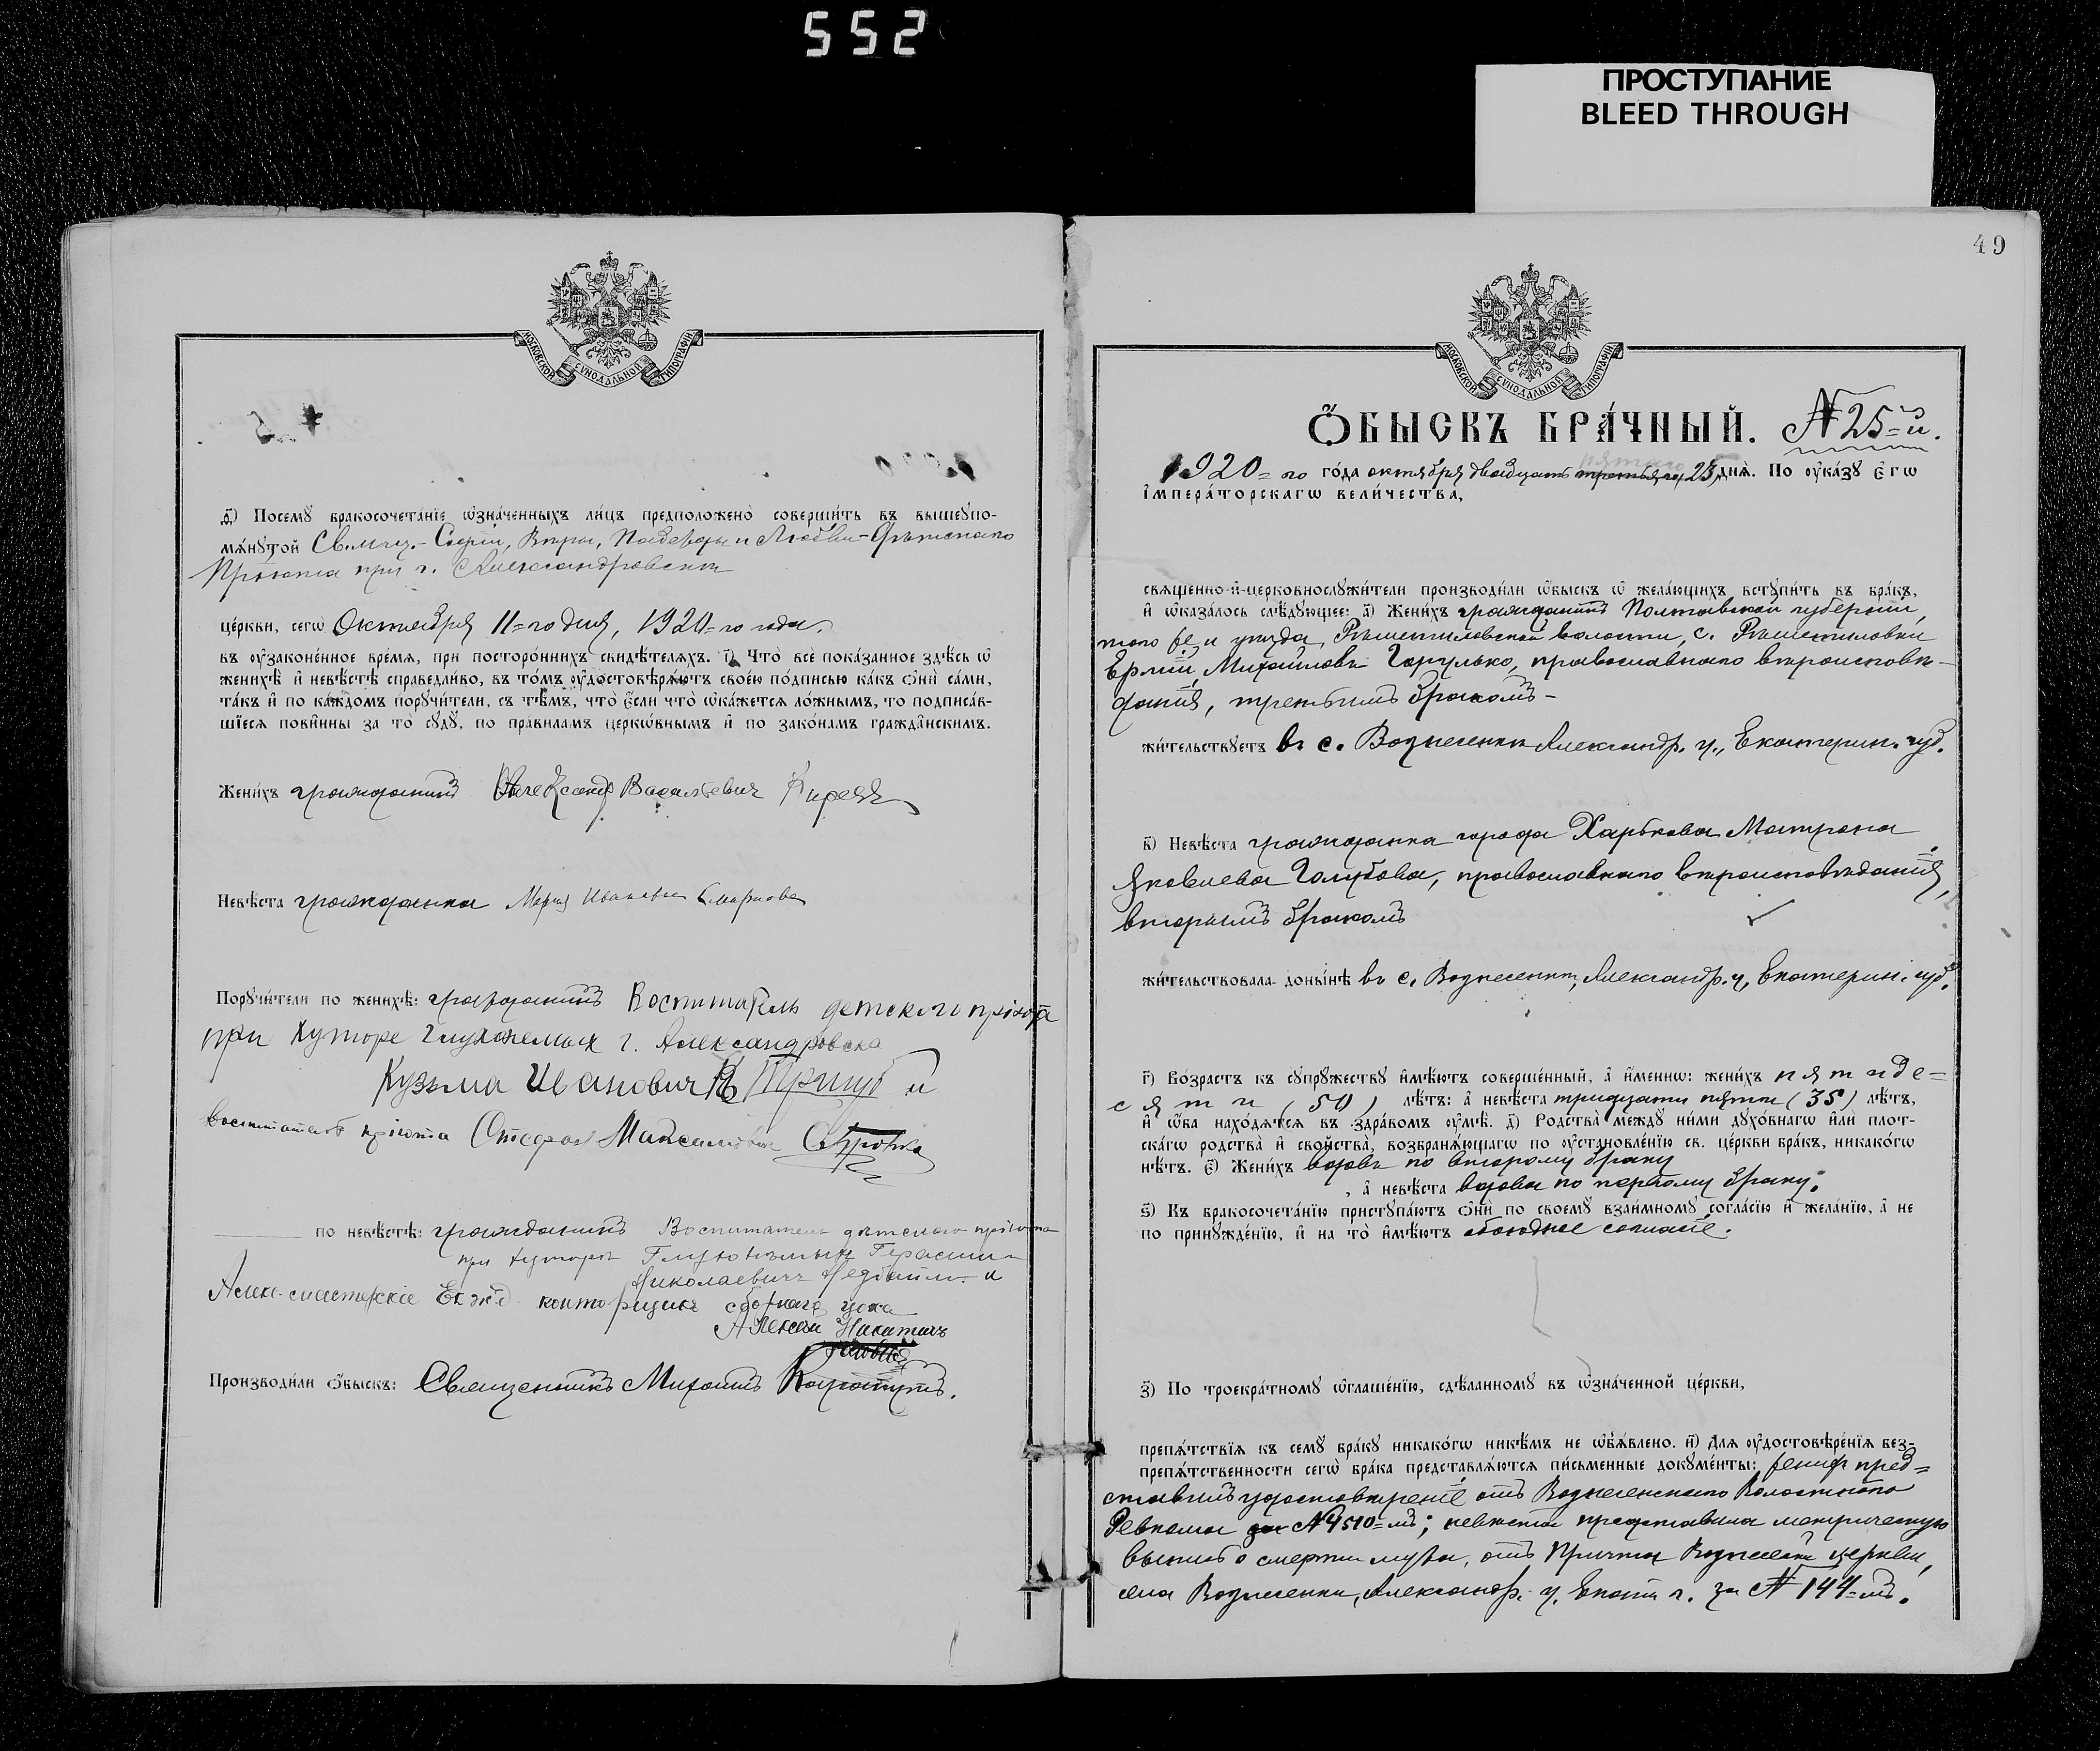 552
ПРОСТУПАНИЕ
BLEED THROUGH
МОСКОВСКОЙ СУНОДАЛЬНОЙ ТИПОГРАФІИ
д҃) Посемꙋ̀ бракосочета́нїе ѡ҆зна́ченныхъ ли́цъ предположено̀ соверши́ть въ вышеꙋпо-
мѧ́нꙋтой Св. мчц. Софіи, Вѣры, Надежды и Любви - Дѣтскаго
Пріюта при г. Александровскѣ
це́ркви, сегѡ̀ Октября 11=го дня, 1920=го года.
въ ᲂу҆законе́нное вре́мѧ, при посторо́ннихъ свидѣ́телѧхъ. і҃) Что̀ всѐ пока́занное здѣ́сь ѡ҆
женихѣ̀ и҆ невѣ́стѣ справедли́во, въ то́мъ ᲂу҆достовѣрѧ́ютъ свое́ю по́дписью ка́къ ѻ҆нѝ са́ми,
та́къ и҆ по ка́ждомъ порꙋчи́тели, съ тѣ́мъ, что̀ є҆́сли что̀ ѡ҆ка́жетсѧ ло́жнымъ, то подписа́в-
шїесѧ пови́нны за то̀ сꙋдꙋ̀, по пра́виламъ церкѡ́внымъ и҆ по зако́намъ гражда́нскимъ.
Жени́хъ гражданинъ Александ Васильевич Киреевъ
Невѣ́ста гражданка Мария Ивановна Смирнова
Порꙋчи́тели по женихѣ̀: гражданинъ Воспитатель детского пріюта
при Хуторе Глухонемых г. Александровска
Кузьма Иванович и
воспитатель пріюта
по невѣ́стѣ: гражданинъ Воспитатель дѣтскаго пріюта
при хуторѣ Глухонѣмых Герасим
Николаевичъ и
Алек. мастерскіе Ек. ж.д. конторщикъ сборнаго цеха
Алексей
Производи́ли ѻ҆́быскъ: Священникъ Михаилъ
49
МОСКОВСКОЙ СУНОДАЛЬНОЙ ТИПОГРАФІИ
Ѻ҆́БЫСКЪ БРА́ЧНЫЙ. № 25=й.
пятаго
1920=го го́да октября двадцать третьяго 25 днѧ̀. По ᲂу҆ка́зꙋ є҆гѡ̀
і҆мпера́торскагѡ вели́чества,
свѧще́нно-и҆-церковнослꙋжи́тели производи́ли ѻ҆́быскъ ѡ҆ жела́ющихъ встꙋпи́ть въ бра́къ,
и҆ ѡ҆каза́лось слѣ́дꙋющее: а҃) Жени́хъ гражданинъ Полтавской губерніи,
того же и уѣзда, Рѣшетиловской волости, с. Рѣшетиловки
Ермій Михайловъ Гарулько, православнаго вѣроисповѣ-
данія, третьимъ бракомъ -
жи́тельствꙋетъ въ с. Вознесенкѣ Александр. у., Екатерин. губ.
в҃) Невѣ́ста гражданка города Харькова Матрона
Яковлева Голубова, православнаго вѣроисповѣданія,
вторымъ бракомъ
жи́тельствовала доны́нѣ въ с. Вознесенкѣ, Александр. у, Екатерин. губ.
г҃) Во́зрастъ къ сꙋпрꙋ́жествꙋ и҆мѣ́ютъ соверше́нный, а҆ и҆́меннѡ: жени́хъ пятиде=
сяти (50) лѣ́тъ: а҆ невѣ́ста тридцати пяти (35) лѣ́тъ,
и҆ ѻ҆́ба нахо́дѧтсѧ въ здра́вомъ ᲂу҆мѣ̀. д҃) Родства̀ междꙋ̀ ни́ми дꙋхо́внагѡ и҆лѝ пло́т-
скагѡ родства̀ и҆ сво́йства, возбранѧ́ющагѡ по ᲂу҆становле́нїю св. це́ркви бра́къ, никако́гѡ
нѣ́тъ. є҃) Жени́хъ вдовъ по второму браку
, а҆ невѣ́ста вдова по первому браку.
ѕ҃) Къ бракосочета́нїю пристꙋпа́ютъ ѻ҆нѝ по своемꙋ̀ взаи́мномꙋ согла́сїю и҆ жела́нїю, а҆ не
по принꙋжде́нїю, и҆ на то̀ и҆мѣ́ютъ обоюдное согласіе.
з҃) По троекра́тномꙋ ѡ҆глаше́нїю, сдѣ́ланномꙋ въ ѡ҆зна́ченной це́ркви,
препѧ́тствїѧ къ семꙋ̀ бра́кꙋ никако́гѡ никѣ́мъ не ѡ҆б̾ѧ́влено. и҃) Для ᲂу҆достовѣре́нїѧ без-
препѧ́тственности сегѡ̀ бра́ка представлѧ́ютсѧ пи́сьменные докꙋме́нты: жених пред=
ставилъ удостовѣреніе отъ Вознесенскаго Волостного
Ревкома за № 4510=мъ; невѣста представила метрическую
выпись о смерти мужа, отъ Причта Вознесен церкви,
села Вознесенки, Александр. у. Екат. г. за № 144=мъ.